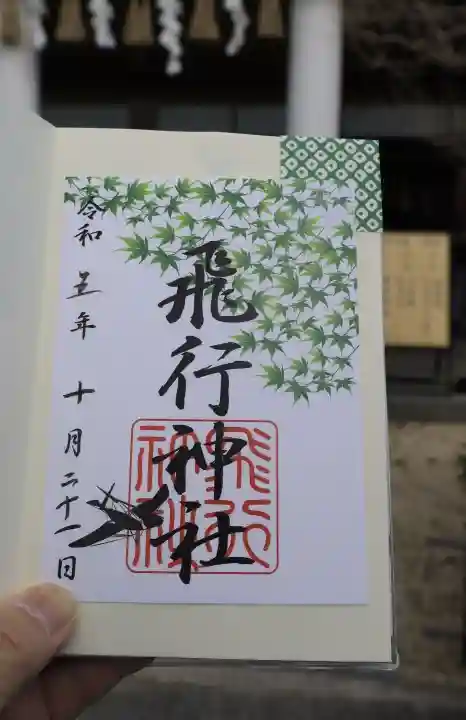 飛行神社
飛行神社
令和五年十月二十一日